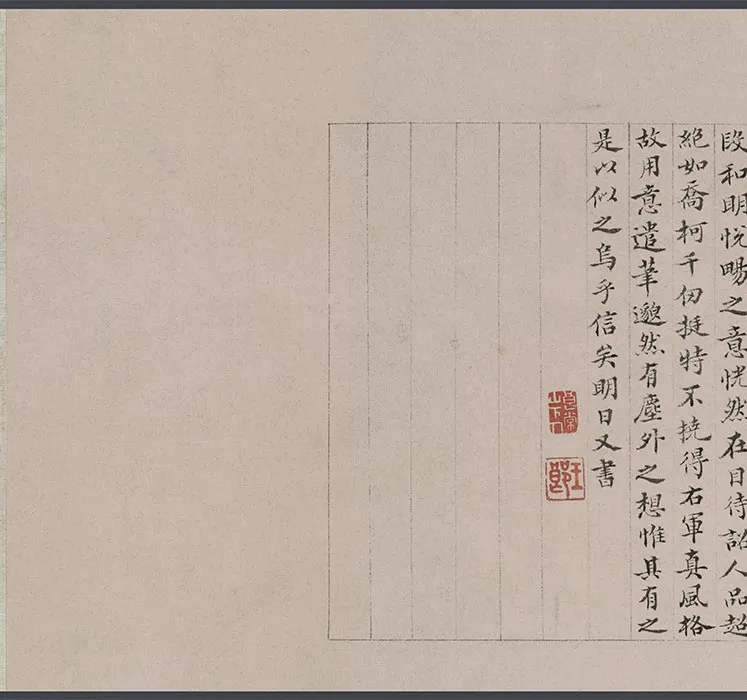 段和明悅暢之意恍然在目待詔人品超
絕如喬柯千仞挺特不撓得右軍真風格
故用意遣筆邈然有塵外之想惟其有之
是以似之烏乎信矣明日又書